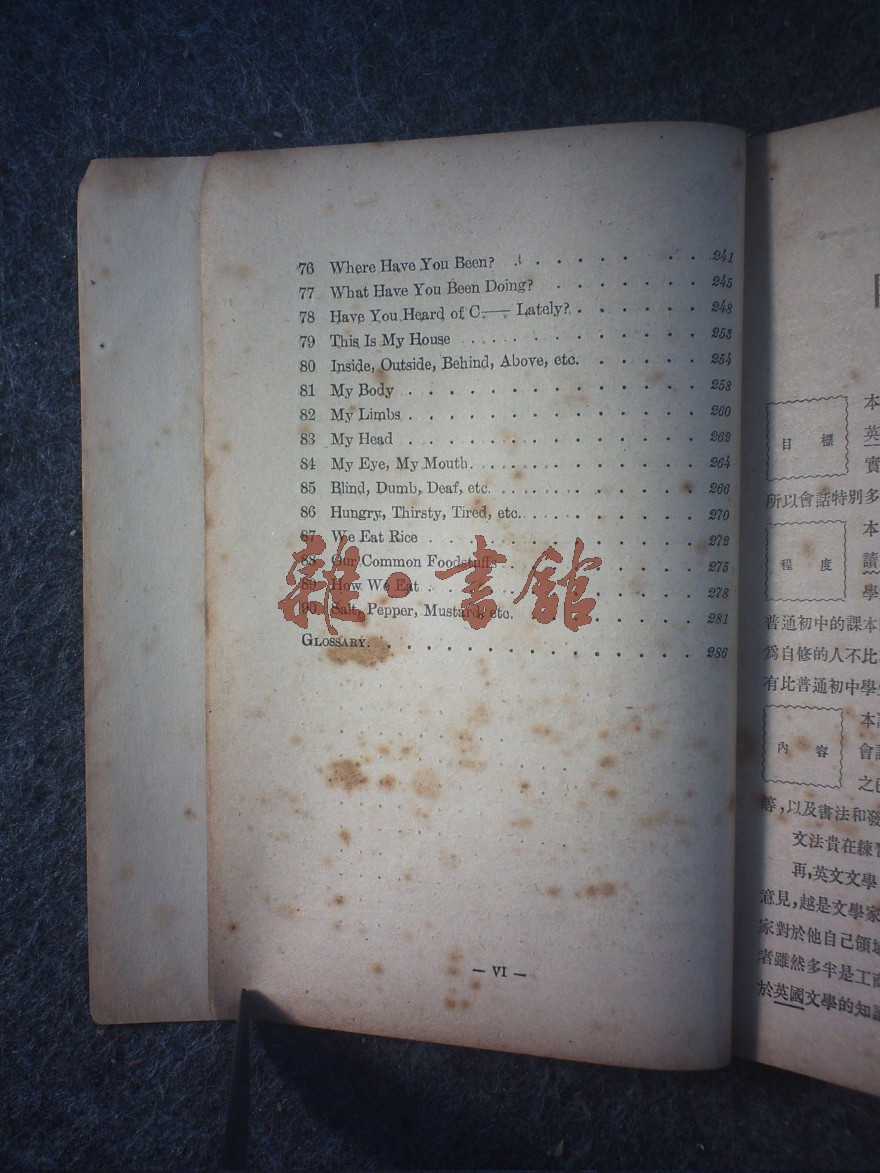 76 Where Have You Been? . . . . . . . . 241
77 What Have You Been Doing? . . . . . . . 245
78 Have You Heard of C—— Lately? . . . . . . 248
79 This Is My House . . . . . . . . . . 253
80 Inside, Outside, Behind, Above, etc. . . . . . . 254
81 My Body . . . . . . . . . . . . 258
82 My Limbs . . . . . . . . . . . . 260
83 My Head . . . . . . . . . . . . 262
84 My Eye, My Mouth. . . . . . . . . . 264
85 Blind, Dumb, Deaf, etc. . . . . . . . . . 266
86 Hungry, Thirsty, Tired, etc. . . . . . . . . 270
87 We Eat Rice . . . . . . . . . . . 272
88 Our Common Foodstuffs . . . . . . . . 275
89 How We Eat . . . . . . . . . . . 278
90 Salt, Pepper, Mustard, etc. . . . . . . . . 281
GLOSSARY. . . . . . . . . . . . . . 286
— VI —
雜·書館
目標
本
英
實
所以會話特別多
程度
本
讀
學
普通初中的課本
爲自修的人不比
有比普通初中學
內容
本
會
之
等,以及書法和發
文法貴在練習
再,英文文學
意見,越是文學家
家對於他自己領域
者雖然多半是工商
於英國文學的知識